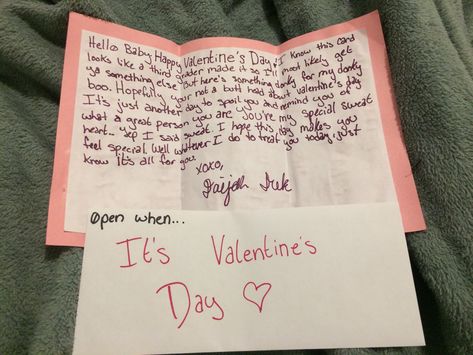 Hello Baby, Happy Valentine's Day! I know this card
looks like a third grader made it so I'll most likely get
ya something else but here's something dorky for my dorky
boo. Hopefully your not a butt head about valentine's day
It's just another day to spoil you and remind you of
what a great person you are. You're my special sweat
heart... yep I said sweat. I hope this day makes you
feel special. Well whatever I do to treat you today, just
know it's all for you.
xoxo,
Open when...
It's Valentine's
Day ♡